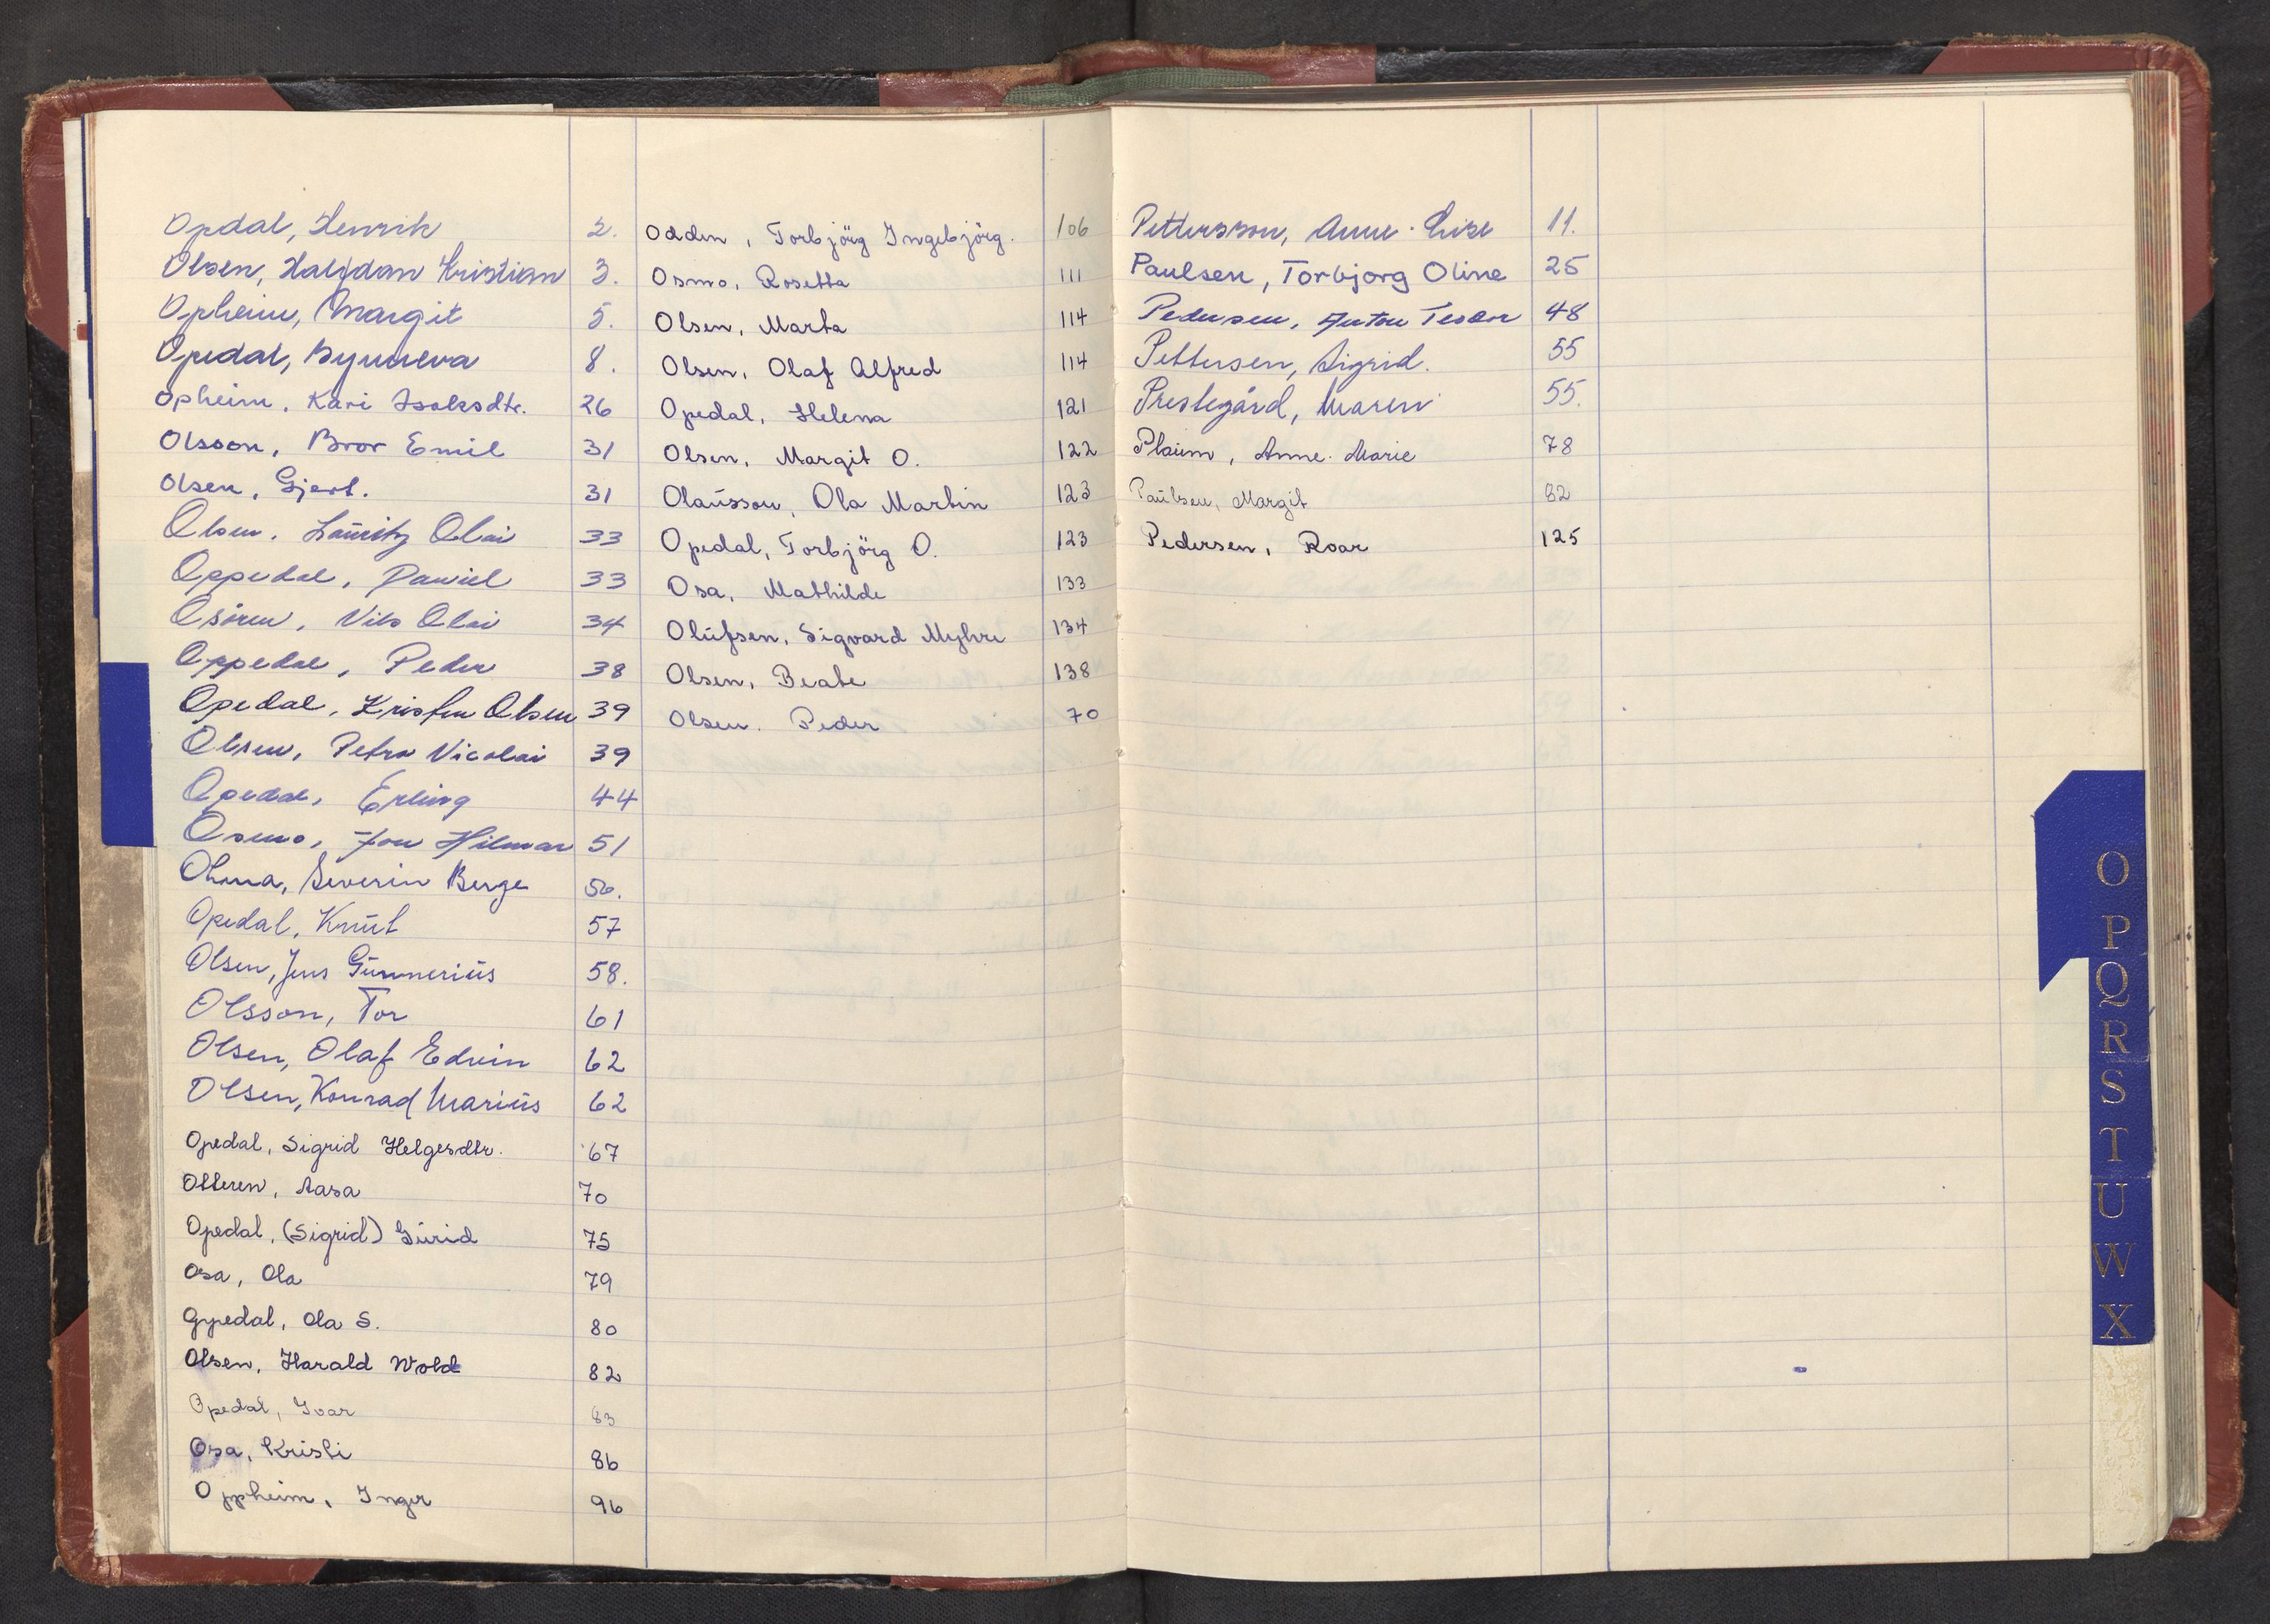 Opdal, Henrik 2.
Olsen, Halfdan Kristian 3.
Opheim, Margit 5.
Opedal, Synneva 8.
Opheim, Kari Isaksdtr. 26
Olsson, Bror Emil 31
Olsen, Gjert. 31
Olsen, Lauritz Olai 33
Oppedal, Daniel 33
Osören, Nils Olai 34
Oppedal, Peder 38
Opedal, Kristen Olsen 39
Olsen, Petra Nicolai 39
Opedal, Erling 44
Osmo, Jon Hilmar 51
Severin Berge 56.
Opedal, Knut 57
Olsen, Jens Gunnerius 58.
Olsson, Tor 61
Olsen, Olaf Edvin 62
Olsen, Konrad Marius 62
Opedal, Sigrid Helgesdtr. 67
Otteren, Aasa 70
Opedal, (Sigrid) Gurid 75
Osa, Ola 79
Opedal, Ola S. 80
Olsen, Harald Wold 82
Opedal, Ivar 83
Osa, Kristi 86
Oppheim, Inger 96
Odden, Torbjörg Ingebjörg. 106
Osmo, Rosetta 111
Olsen, Marta 114
Olsen, Olaf Alfred 114
Opedal, Helena 121
Olsen, Margit O. 122
Olausson, Ola Martin 123
Opedal, Torbjörg O. 123
Osa, Mathilde 133
Olufsen, Sigvard Myhre 134
Olsen, Beate 138
Olsen. Peder 70
Pettersson, Anne-Lise 11.
Paulsen, Torbjorg Oline 25
Pedersen, Anton 48
Pettersen, Sigrid. 55
Prestegård, Maren 55.
Plaum, Anne-Marie 78
Paulsen, Margit 82
Pedersen, Roar 125
O
P
Q
R
S
T
U
W
X